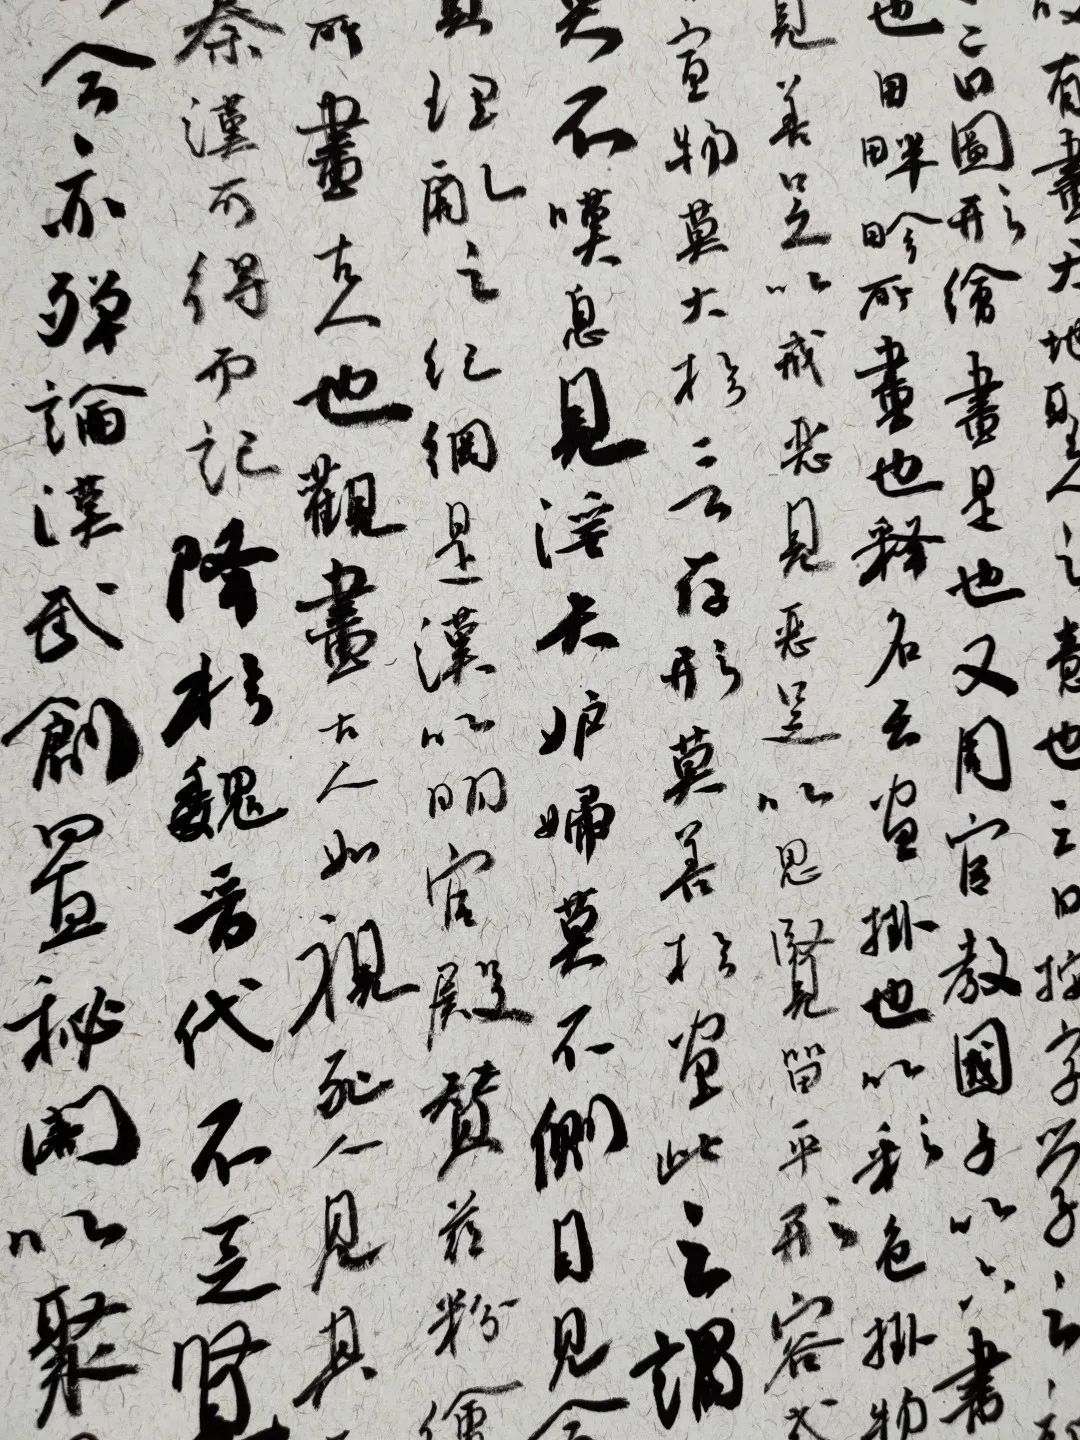 有畫天地聖人之意也又曰按字學之部
二曰圖形繪畫是也又周官教國子以六書
也田畔畛所畫也釋名云畫掛也以彩色掛物
見善足以戒惡見惡足以思賢留乎形容式
宣物莫大於言存形莫善於畫此之謂
不嘆息見淫夫妒婦莫不側目見令
理亂之紀綱是漢以明宮殿贊茲粉繪
所畫古人也觀畫古人如視死人見其
秦漢可得而記降於魏晉代不乏賢
今亦殫論漢武創置秘閣以聚